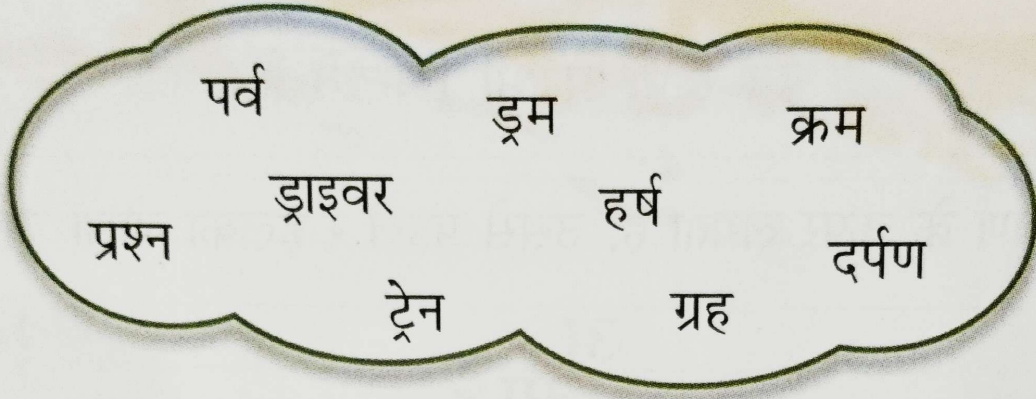 पर्व
ड्रम
क्रम
ड्राइवर
हर्ष
प्रश्न
दर्पण
ट्रेन
ग्रह